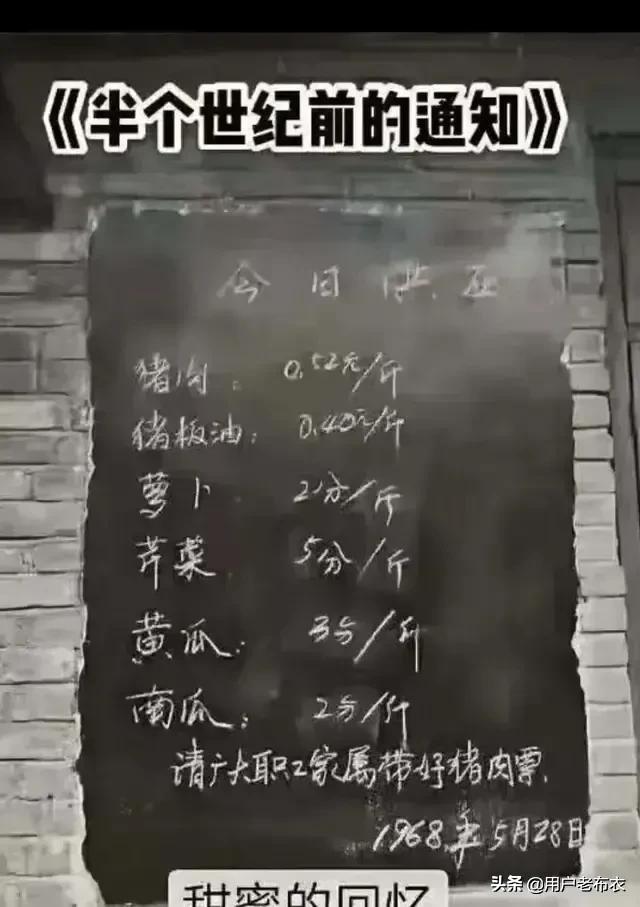 《半个世纪前的通知》
今日供应
猪肉: 0.52元/斤
猪板油: 0.40元/斤
萝卜 2分/斤
芹菜 5分/斤
黄瓜: 3分/斤
南瓜: 2分/斤
请广大职工家属带好猪肉票.
1968年5月28日
甜蜜的回忆
头条 @用户老布衣